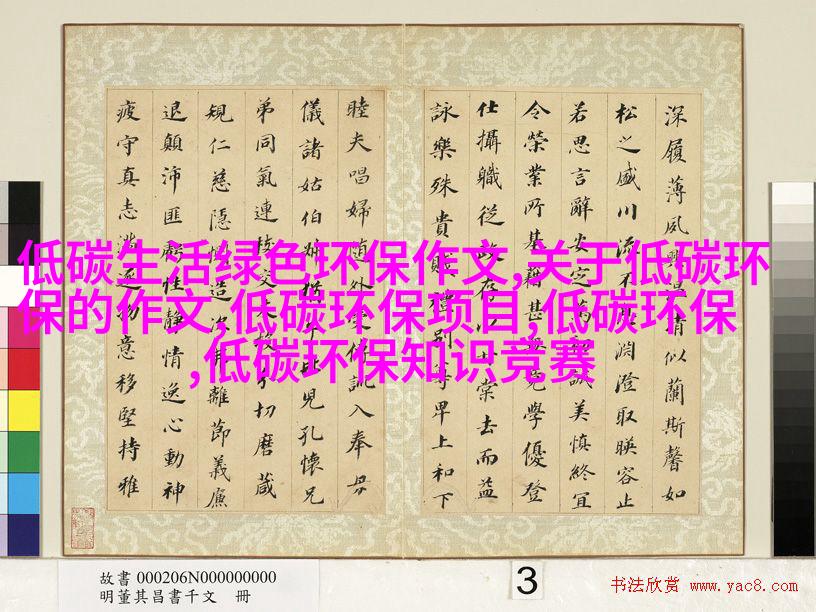 低碳生活绿色环保作文,关于低碳环
保的作文,低碳环保项目,低碳环保
,低碳环保知识竞赛
深履薄夙興溫凊似蘭斯馨如
松之盛川流不息淵澄取暎容止
若思言辭安定篤初誠美慎終宜
令榮業所基藉甚無竟學優登
仕攝職從政存以甘棠去而益
詠樂殊貴賤禮別尊卑上和下
睦夫唱婦隨外受傅訓入奉母
儀諸姑伯叔猶子比兒孔懷兄
弟同氣連枝交友投分切磨箴
規仁慈隱惻造次弗離節義廉
退顛沛匪虧性靜情逸心動神
疲守真志滿逐物意移堅持雅
故書 000206N000000000
明董其昌書千文 冊
3
书法欣赏 www.yac8.com